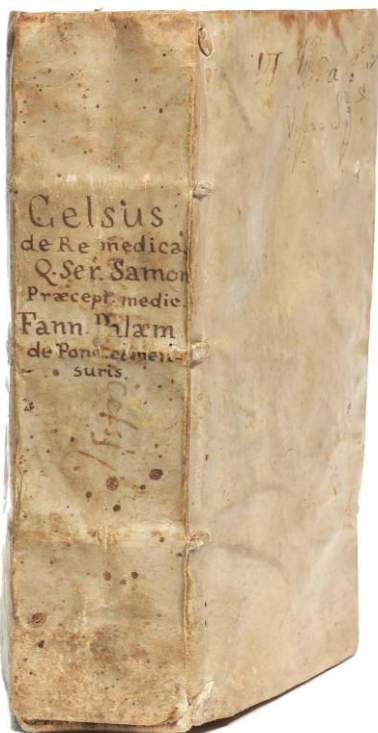 Celsus
de Re medica,
Q. Ser. Samon
Præcept. medic.
Fann. Palæm
de Pond. et men-
suris.
Celsi